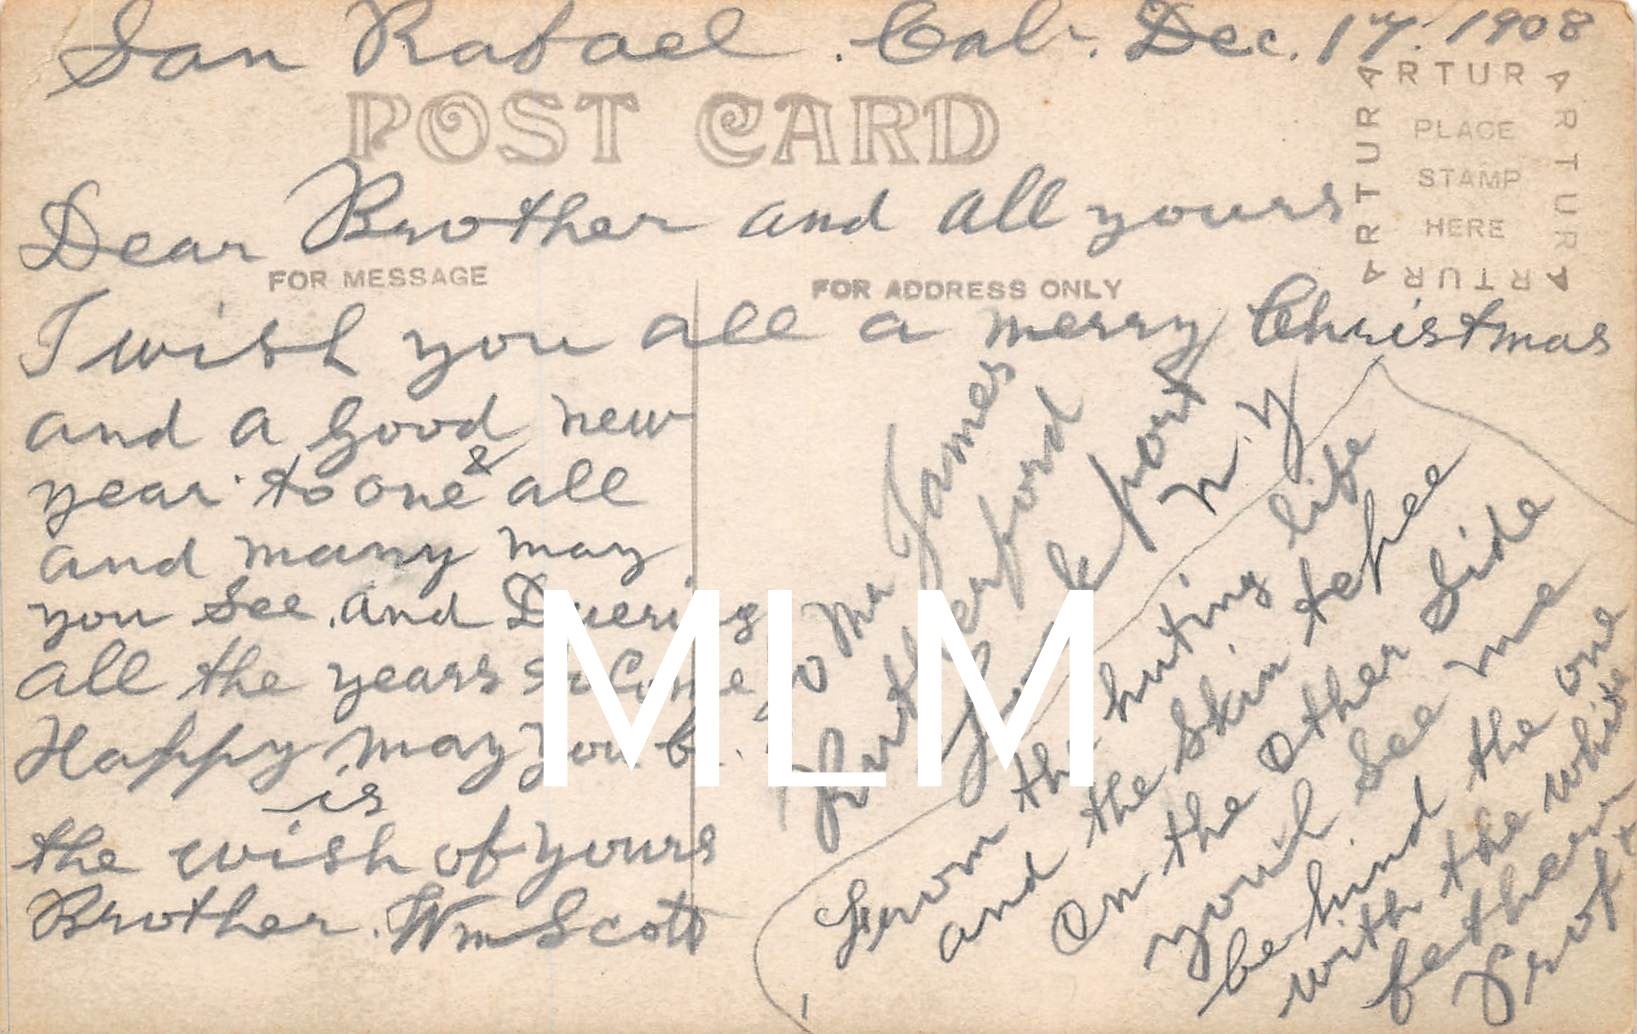 San Rafael. Cal. Dec. 17. 1908
ARTURA ARTURA ARTURA ARTURA
PLACE
STAMP
HERE
POST CARD
Dear Brother and all yours
FOR MESSAGE
FOR ADDRESS ONLY
I wish you all a merry Christmas
and a good new
year to one & all
and many may
you See. and Duering
all the years to Come
Happy may you b
is
the wish of yours
Brother. Wm Scott
To Mr James
Rutherford
Lockport
N.Y
From the huting life
and the Skin tepee
On the Other Side
you'l See me
behind the one
with the white
fether
MLM